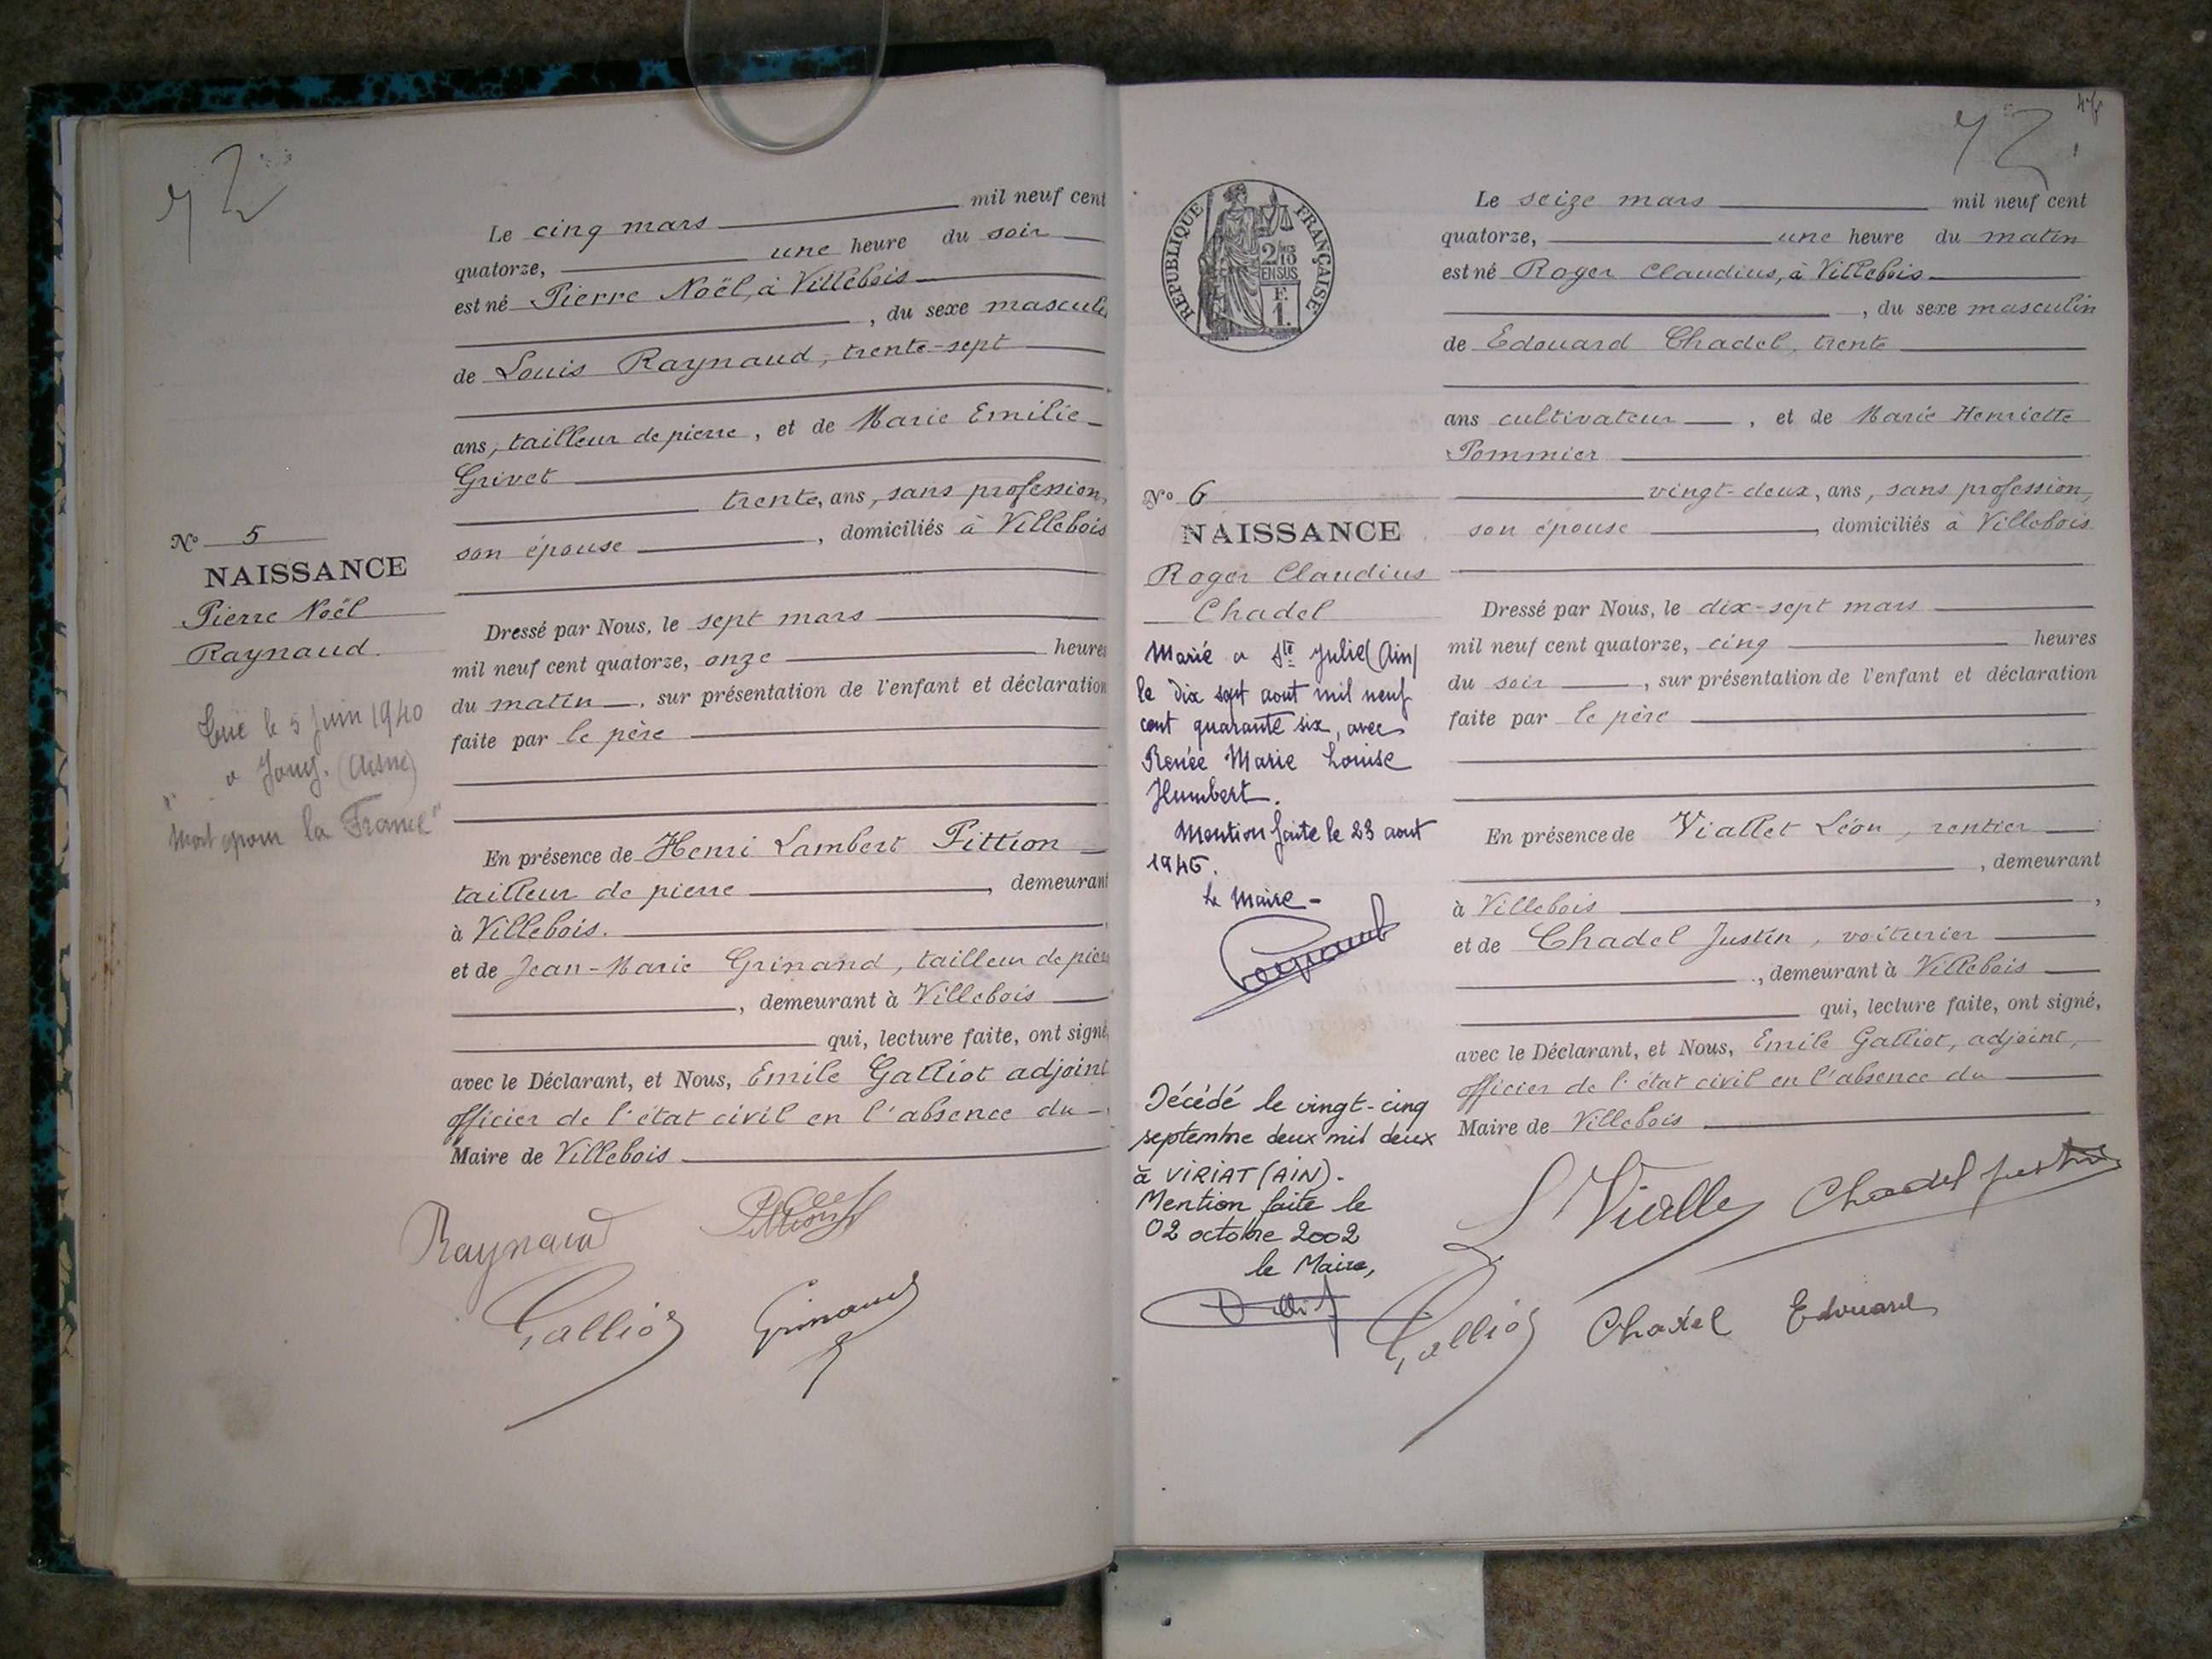 72
Le cinq mars mil neuf cent
quatorze, une heure du soir
est né Pierre Noël, à Villebois
, du sexe masculi
de Louis Raynaud, trente-sept
ans, tailleur de pierre, et de Marie Emilie
Grivet
trente, ans, sans profession,
son épouse , domiciliés à Villebois
N° 5
NAISSANCE
Pierre Noël
Raynaud.
Tué le 5 Juin 1940
a Jouy. (Aisne)
"Mort pour la France"
Dressé par Nous, le sept mars
mil neuf cent quatorze, onze heures
du matin , sur présentation de l'enfant et déclaration
faite par le père
En présence de Henri Lambert Pittion
tailleur de pierre , demeurant
à Villebois.
et de Jean-Marie Grinand, tailleur de pierre
, demeurant à Villebois
qui, lecture faite, ont signé,
avec le Déclarant, et Nous, Emile Galliot adjoint
officier de l'état civil en l'absence du
Maire de Villebois
Raynaud Pittion
Galliot Grinand
72
RÉPUBLIQUE FRANÇAISE
2/10
EN SUS
F.
1.
Le seize mars mil neuf cent
quatorze, une heure du matin
est né Roger Claudius, à Villebois
, du sexe masculin
de Edouard Chadel, trente
ans cultivateur , et de Marie Henriette
Pommier
vingt-deux, ans, sans profession,
son épouse , domiciliés à Villebois
N° 6
NAISSANCE
Roger Claudius
Chadel
Marié a Ste Julie (Ain)
le dix sept aout mil neuf
cent quarante six, avec
Renée Marie Louise
Humbert.
Mention faite le 23 aout
1946.
Le Maire -
Décédé le vingt-cinq
septembre deux mil deux
à VIRIAT (AIN).
Mention faite le
02 octobre 2002
le Maire,
Dressé par Nous, le dix-sept mars
mil neuf cent quatorze, cinq heures
du soir , sur présentation de l'enfant et déclaration
faite par le père
En présence de Viallet Léon, rentier
, demeurant
à Villebois ,
et de Chadel Justin, voiturier
, demeurant à Villebois
qui, lecture faite, ont signé,
avec le Déclarant, et Nous, Emile Galliot, adjoint,
officier de l'état civil en l'absence du
Maire de Villebois
L Viallet Chadel Justin
Galliot Chadel Edouard